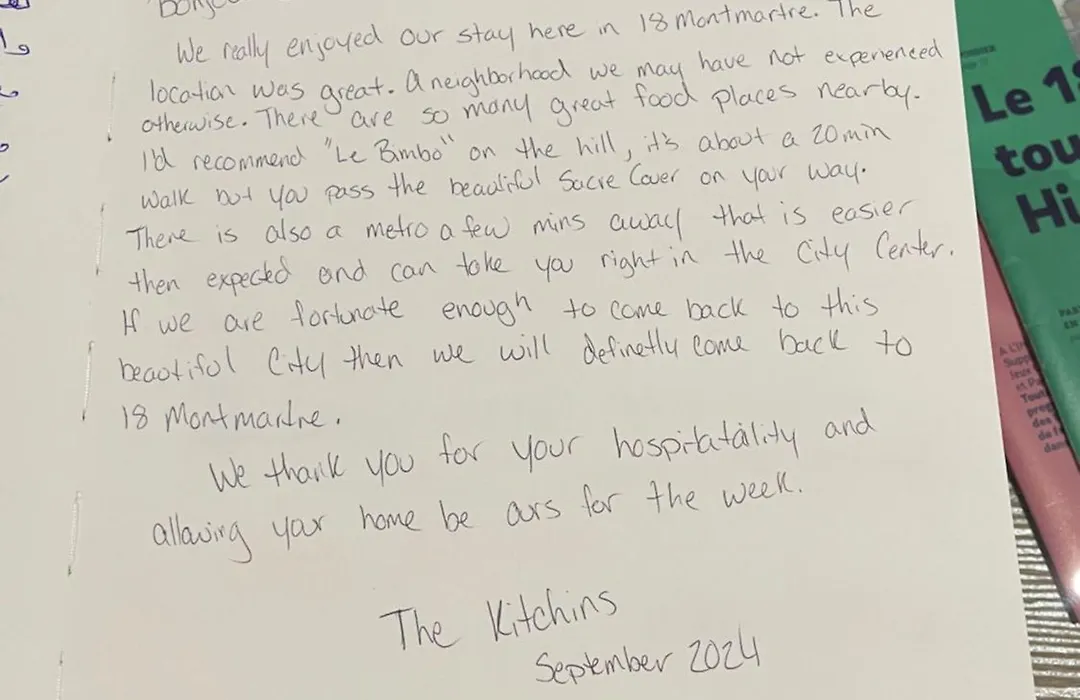 We really enjoyed our stay here in 18 Montmartre. The
location was great. A neighborhood we may have not experienced
otherwise. There are so many great food places nearby.
I'd recommend "Le Bimbo" on the hill, it's about a 20 min
walk but you pass the beautiful Sacre Couer on your way.
There is also a metro a few mins away that is easier
then expected and can take you right in the City Center.
If we are fortunate enough to come back to this
beautiful City then we will definetly come back to
18 Montmartre.
We thank you for your hospitatality and
allowing your home be ours for the week.
The Kitchins
September 2024
Le 18
tou
Hi